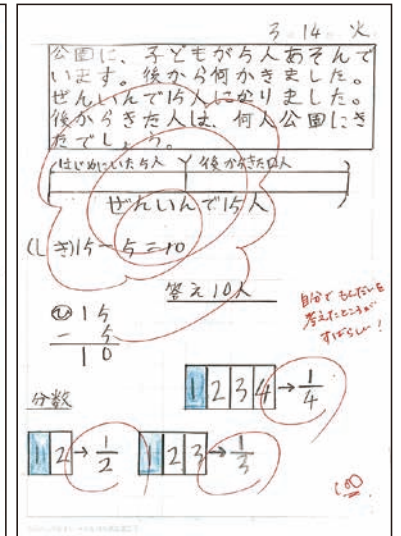 3 14 火
公園に、子どもが5人あそんで
います。後から何かきました。
ぜんいんで15人になりました。
後からきた人は、何人公園にき
たでしょう。
はじめにいた5人 後からきた□人
ぜんいんで15人
(しき)15-5=10
答え10人
ひ 15
- 5
10
自分でもんだいを
考えたところが
すばらしい!
1 2 3 4 → 1/4
分数
1 2 → 1/2 1 2 3 → 1/3
100